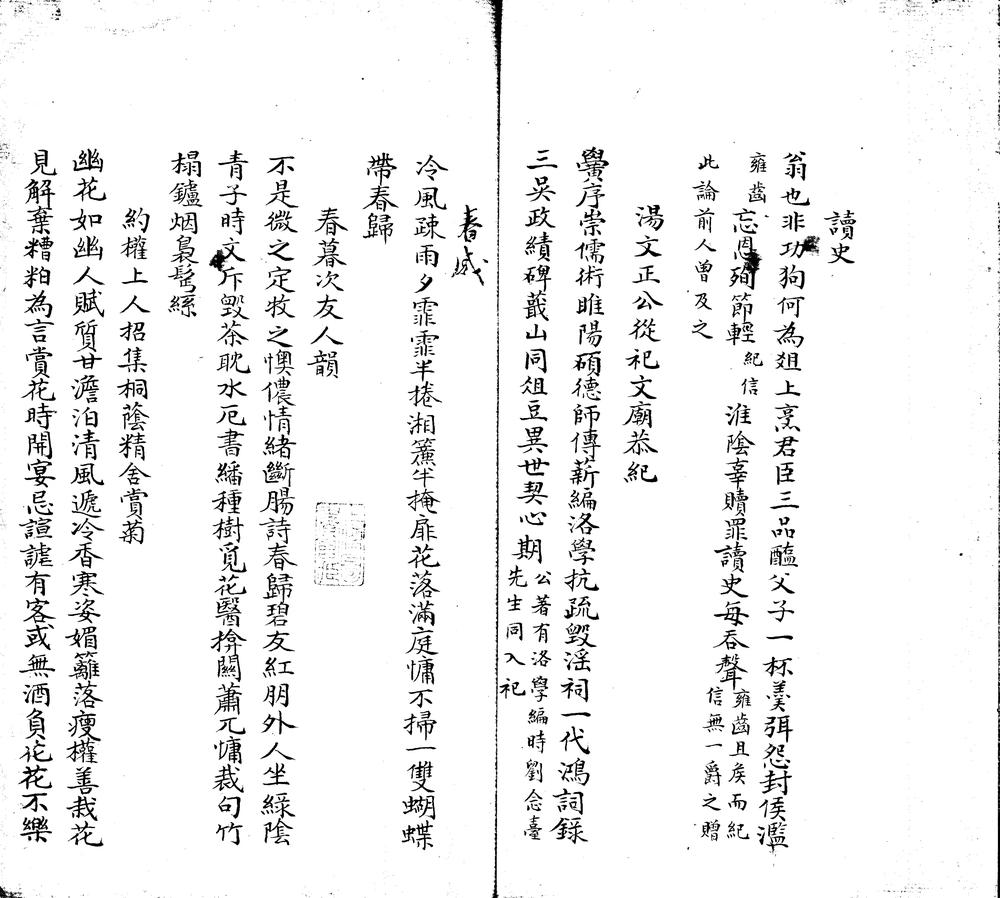 讀史
翁也非功狗何為爼上烹君臣三品醢父子一杯羹弭怨封侯濫
雍齒忘恩殉節輕紀信淮陰辜贖罪讀史每吞聲雍齒且矦而紀信無一爵之贈
此論前人曾及之
湯文正公從祀文廟恭紀
黌序崇儒術睢陽碩德師傳薪編洛學抗疏毀滛祠一代鴻詞錄
三吳政績碑蕺山同俎豆異世契心期公著有洛學編時劉念臺先生同入祀
春感
冷風疎雨夕霏霏半捲湘簾半掩扉花落滿庭慵不掃一雙蝴蝶
帶春歸
春暮次友人韻
不是微之定牧之懊儂情緒斷腸詩春歸碧友紅朋外人坐綠陰
青子時文斥毀茶耽水厄書繙種樹覓花醫揜關蕭兀慵裁句竹
榻鑪烟裊髩絲
約權上人招集桐蔭精舍賞菊
幽花如幽人賦質甘澹泊清風遞冷香寒姿媚籬落瘦權善栽花
見解棄糟粕為言賞花時開宴忌諠謔有客或無酒負花花不樂